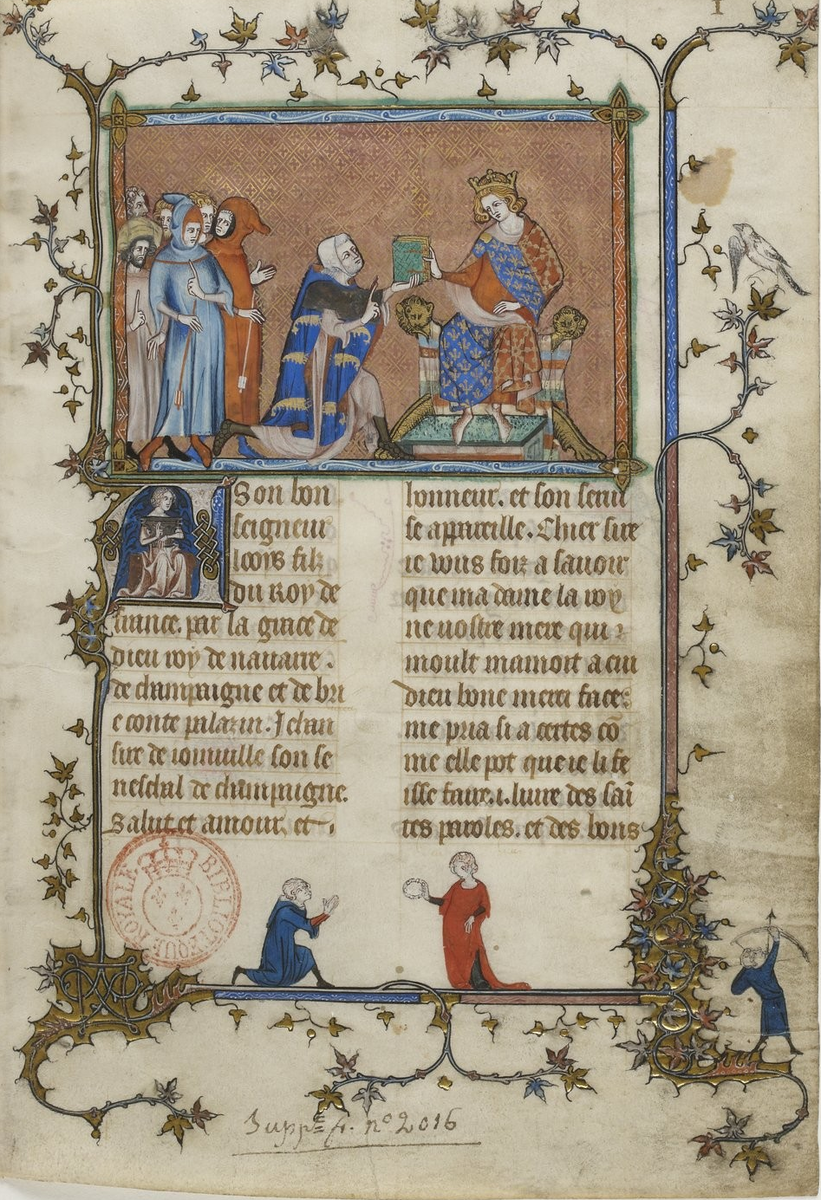 A Son bon
seigneur
looys filz
du Roy de
france. par la grace de
dieu roy de nauarre.
de champaigne et de bri
e conte palazin. Jehan
sire de ionuille son se
neschal de champaigne.
Salut et amour et
honneur. et son seruı
se appareille. Chier sire
ie vous foiz a sauoir
que ma dame la roy
ne uostre mere qui
moult mamoit a cui
dieu bone merci face.
me pria si a certes cō
me elle pot que ie li fe
isse faire .i. liure des saī
tes paroles. et des bons
BIBLIOTEQUE ROYALE
Supp. fr. nº 2016